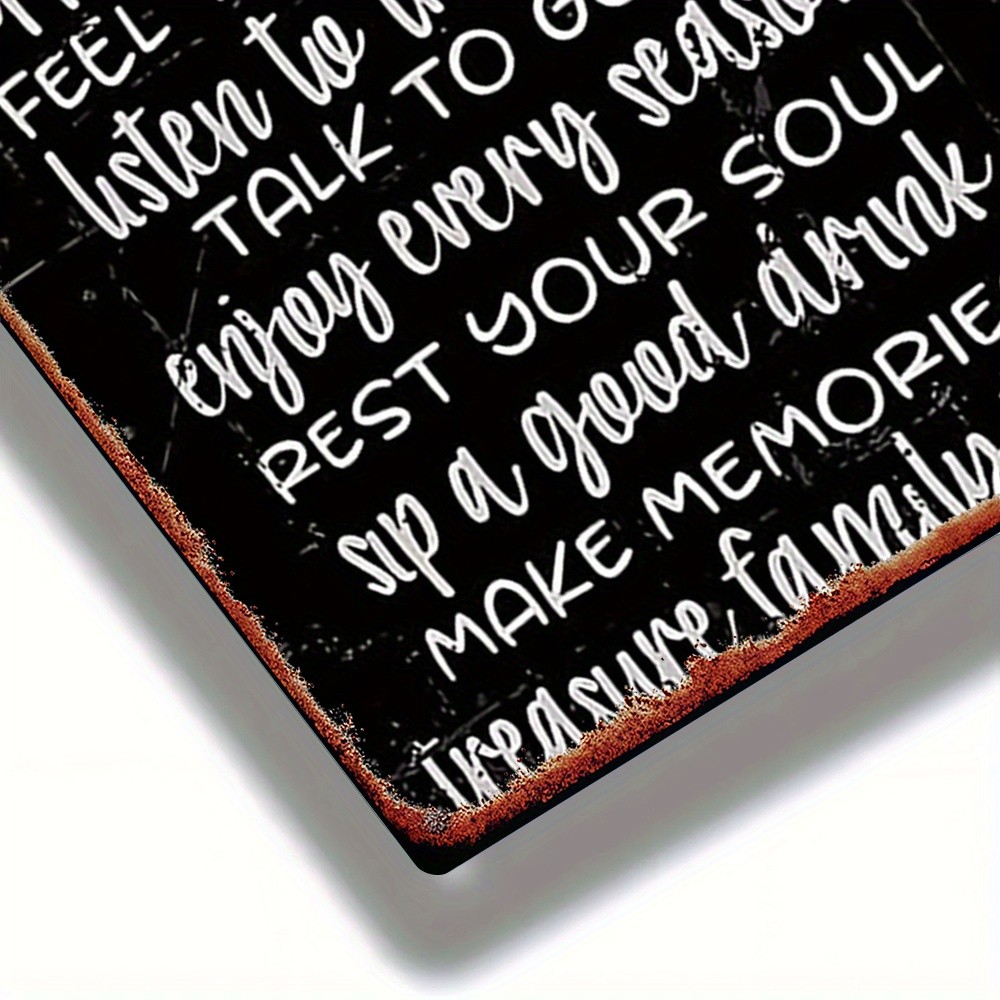 FEEL
listen to
TALK TO
enjoy every season
REST YOUR SOUL
sip a good drink
MAKE MEMORIE
treasure family